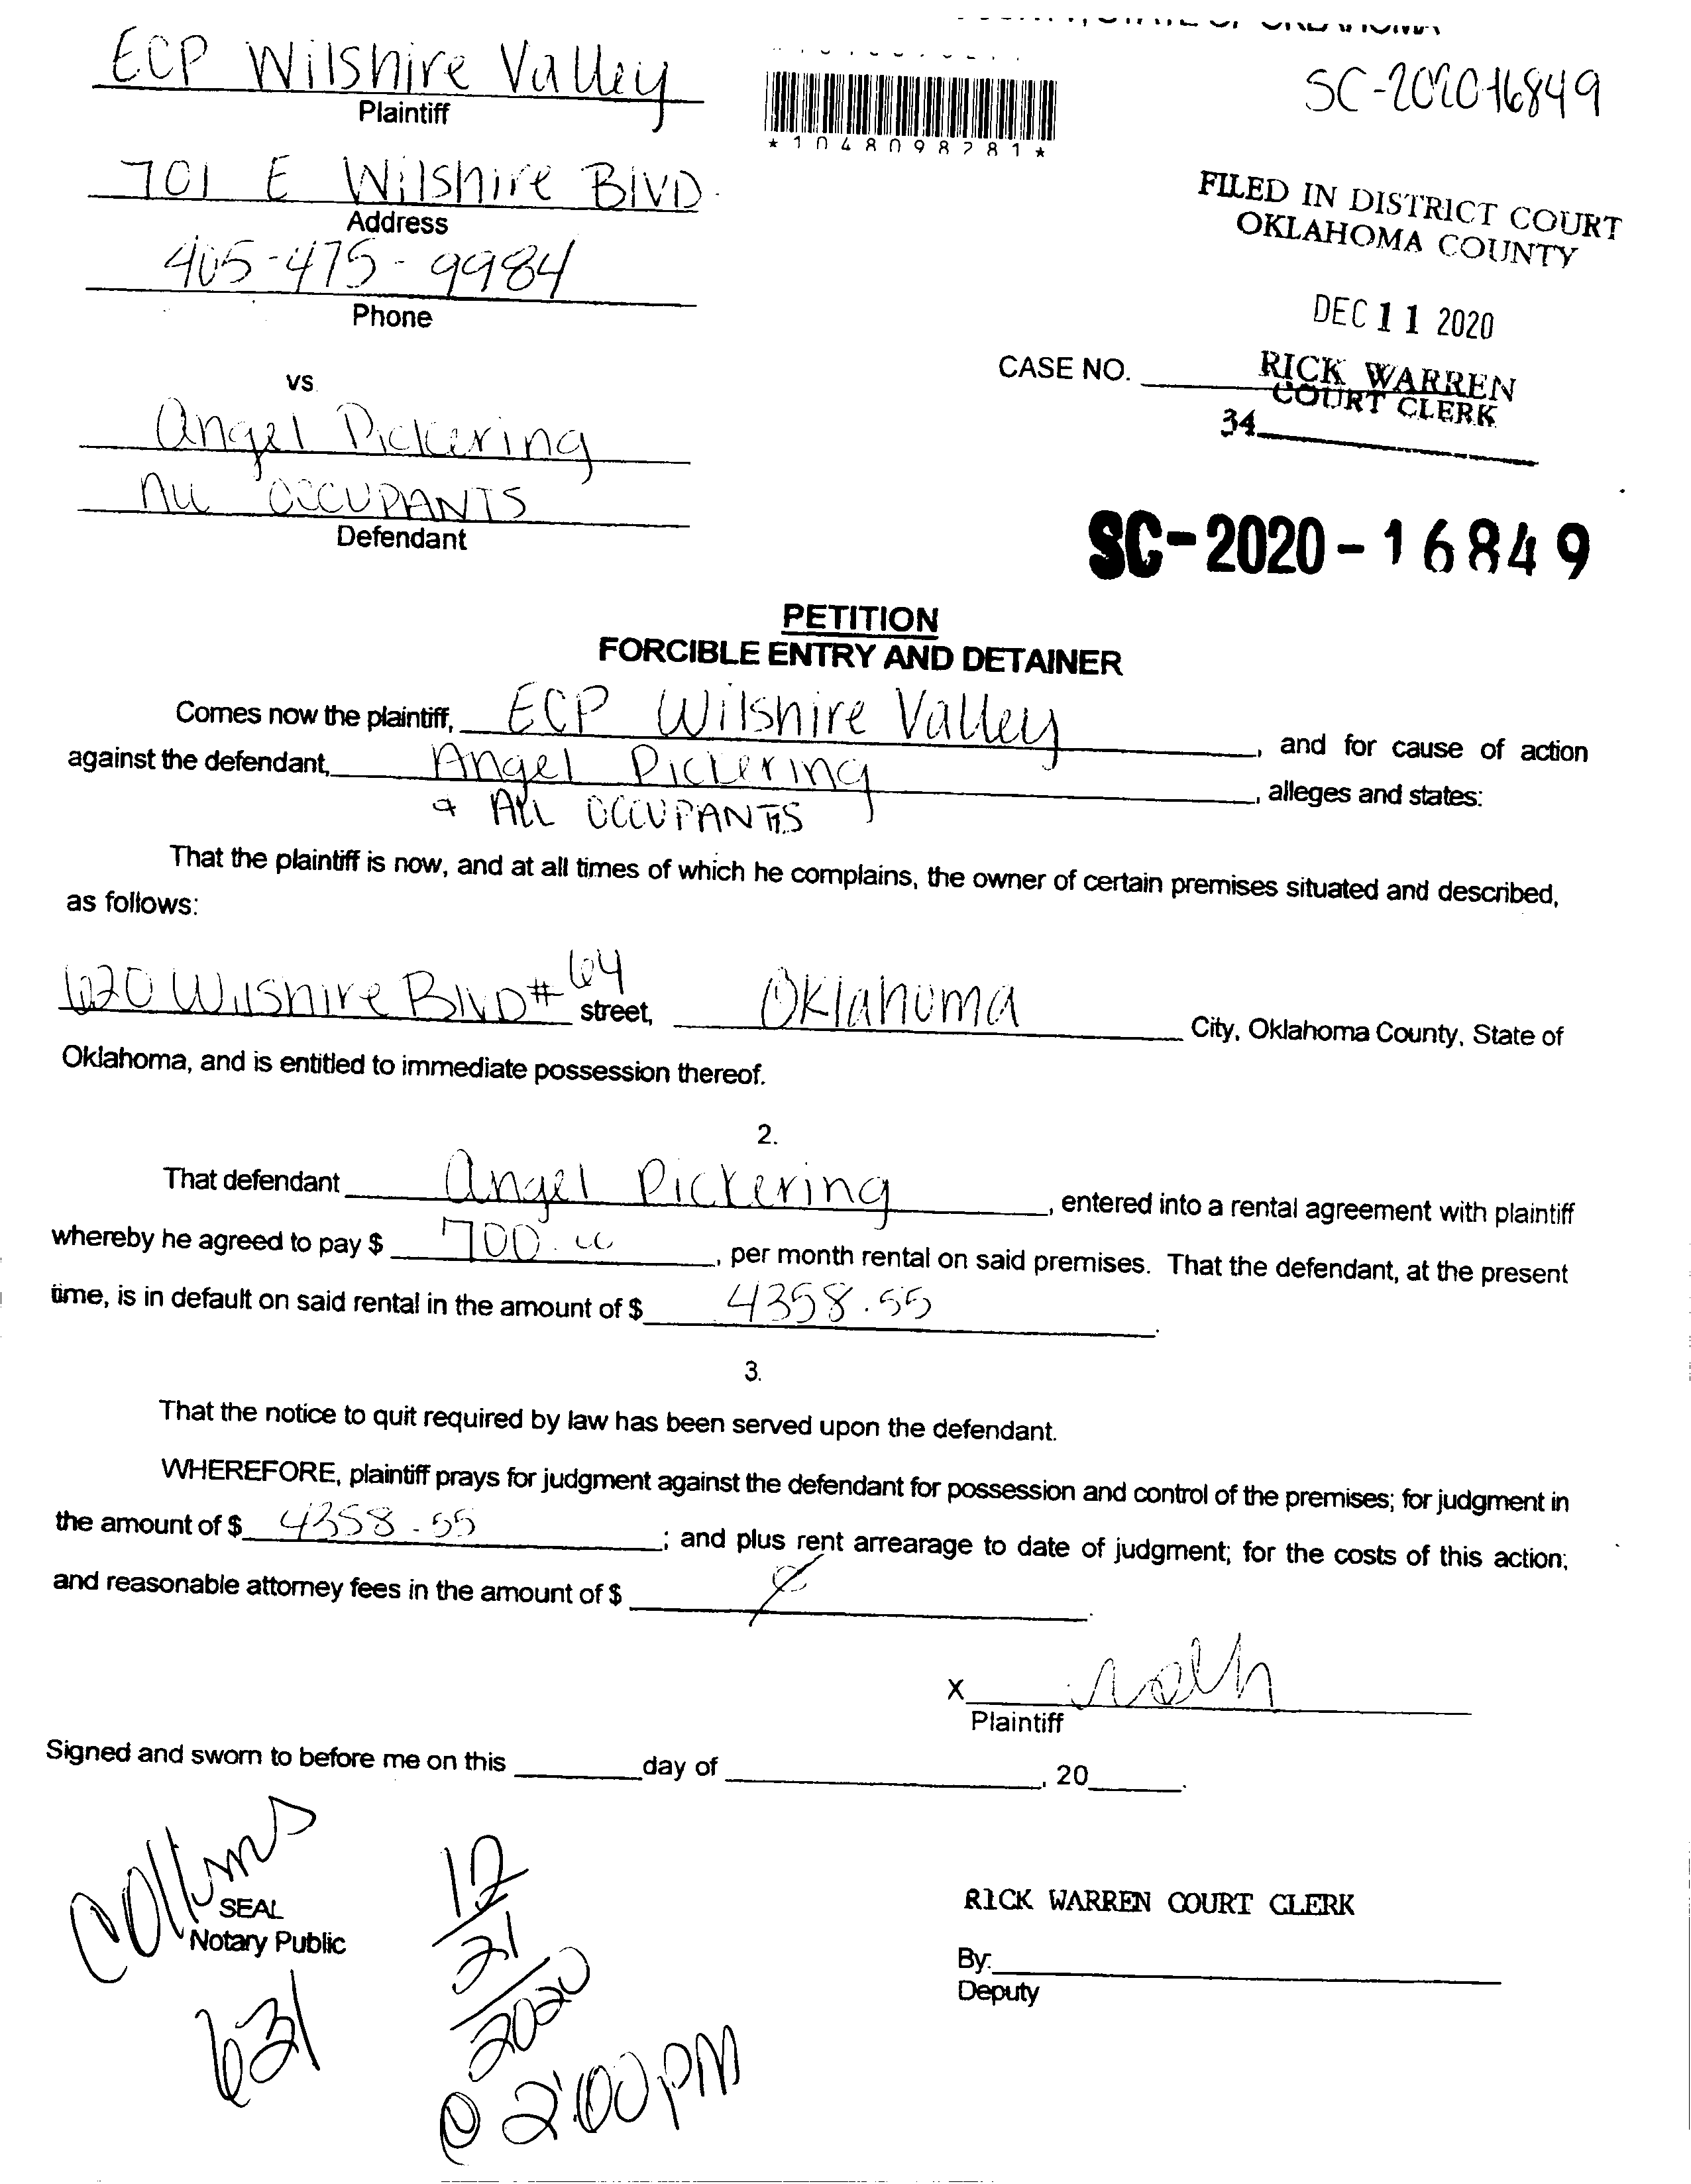 ECP Wilshire Valley
Plaintiff
701 E Wilshire BLVD.
Address
405-475-9984
Phone
vs.
Angel Pickering
All OCCUPANTS
Defendant
*1048098281*
SC-2020-16849
FILED IN DISTRICT COURT
OKLAHOMA COUNTY
DEC 11 2020
RICK WARREN
COURT CLERK
CASE NO.
34
SC-2020-16849
PETITION
FORCIBLE ENTRY AND DETAINER
Comes now the plaintiff, ECP Wilshire Valley, and for cause of action
against the defendant, Angel Pickering, alleges and states:
& ALL OCCUPANTS
That the plaintiff is now, and at all times of which he complains, the owner of certain premises situated and described,
as follows:
620 Wilshire BLVD #64 street, Oklahoma City, Oklahoma County, State of
Oklahoma, and is entitled to immediate possession thereof.
2.
That defendant Angel Pickering, entered into a rental agreement with plaintiff
whereby he agreed to pay $ 700.00, per month rental on said premises. That the defendant, at the present
time, is in default on said rental in the amount of $ 4358.55.
3.
That the notice to quit required by law has been served upon the defendant.
WHEREFORE, plaintiff prays for judgment against the defendant for possession and control of the premises; for judgment in
the amount of $ 4358.55; and plus rent arrearage to date of judgment; for the costs of this action;
and reasonable attorney fees in the amount of $
X
Plaintiff
Signed and sworn to before me on this day of , 20 .
Collins
SEAL
Notary Public
631
12/21/2020
@ 2:00 PM
RICK WARREN COURT CLERK
By:
Deputy